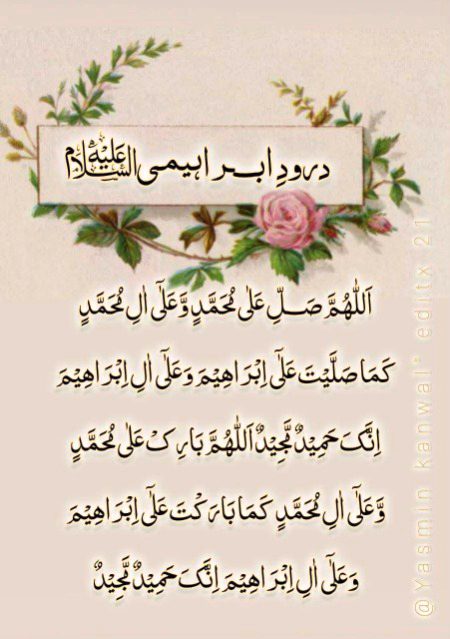 درودِ ابراہیمی علیہ السلام
اَللّٰهُمَّ صَلِّ عَلٰی مُحَمَّدٍ وَّعَلٰٓی اٰلِ مُحَمَّدٍ
کَمَا صَلَّیْتَ عَلٰٓی اِبْرَاهِیْمَ وَعَلٰٓی اٰلِ اِبْرَاهِیْمَ
اِنَّکَ حَمِیْدٌ مَّجِیْدٌ اَللّٰهُمَّ بَارِکْ عَلٰی مُحَمَّدٍ
وَّعَلٰٓی اٰلِ مُحَمَّدٍ کَمَا بَارَکْتَ عَلٰٓی اِبْرَاهِیْمَ
وَعَلٰٓی اٰلِ اِبْرَاهِیْمَ اِنَّکَ حَمِیْدٌ مَّجِیْدٌ
@Yasmin kanwal* editx 21